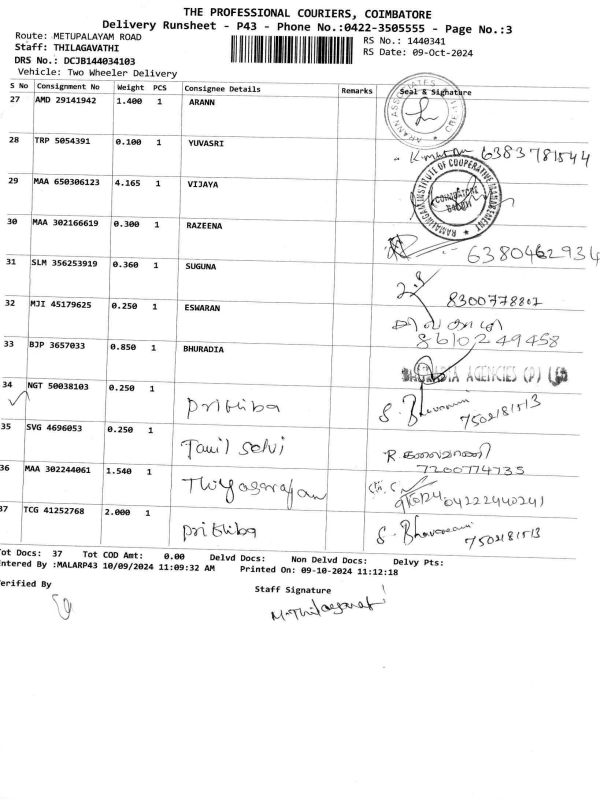 THE PROFESSIONAL COURIERS, COIMBATORE
Delivery Runsheet - P43 - Phone No.:0422-3505555 - Page No.:3
Route: METUPALAYAM ROAD
RS No.: 1440341
Staff: THILAGAVATHI
RS Date: 09-Oct-2024
DRS No.: DCJB144034103
Vehicle: Two Wheeler Delivery
S No Consignment No Weight PCS Consignee Details Remarks Seal & Signature
27 AMD 29141942 1.400 1 ARANN
ARANN ASSOCIATES
28 TRP 5054391 0.100 1 YUVASRI
6383781544
29 MAA 650306123 4.165 1 VIJAYA
INSTITUTE OF COOPERATIVE MANAGEMENT
COIMBATORE
30 MAA 302166619 0.300 1 RAZEENA
6380462934
31 SLM 356253919 0.360 1 SUGUNA
8300778802
32 MJI 45179625 0.250 1 ESWARAN
8610249458
33 BJP 3657033 0.850 1 BHURADIA
BHURADIA AGENCIES (P) LTD
34 NGT 50038103 0.250 1 Prithiba S. Bhavani 7502181513
35 SVG 4696053 0.250 1 Tamil Selvi R. கலைவாணி
7200774735
36 MAA 302244061 1.540 1 Thiyagarajan
9/10/24 04222440241
37 TCG 41252768 2.000 1 Prithiba S. Bhavani 7502181513
Tot Docs: 37 Tot COD Amt: 0.00 Delvd Docs: Non Delvd Docs: Delvy Pts:
Entered By :MALARP43 10/09/2024 11:09:32 AM Printed On: 09-10-2024 11:12:18
Verified By
Staff Signature
M. Thilagavathi